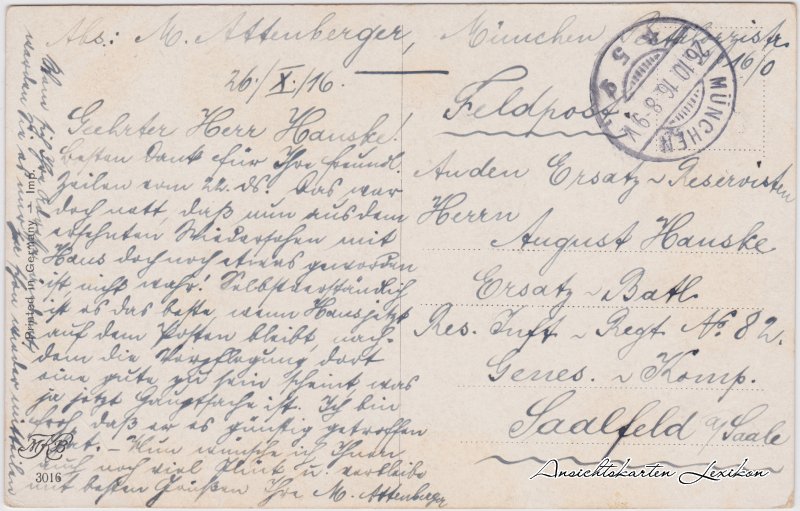 Abs: M. Attenberger, München
16/0
26./X./16.
Geehrter Herr Hanske!
Besten Dank für Ihre freundl.
Zeilen vom 22. ds. Das war
doch nett, daß nun aus dem
ersehnten Wiedersehen mit
Hans doch noch etwas geworden
ist nicht wahr! Selbstverständlich
ist es das beste, wenn Hans jetzt
auf dem Posten bleibt, nach-
dem die Verpflegung dort
eine gute zu sein scheint, was
ja jetzt Hauptsache ist. Ich bin
froh, daß er es günstig getroffen
hat. – Nun wünsche ich Ihnen
auch noch viel Glück u. verbleibe
mit besten Grüßen Ihre M. Attenberger
werden Sie es mir ja schon wieder mitteilen
Feldpost.
An den Ersatz-Reservisten
Herrn
August Hanske
Ersatz-Batl
Res. Inft-Regt No. 82.
Genes. - Komp.
Saalfeld a/Saale
MÜNCHEN
26.10.16.8-9 V.
Printed in Germany — Imp.
MKB
3016
Ansichtskarten Lexikon